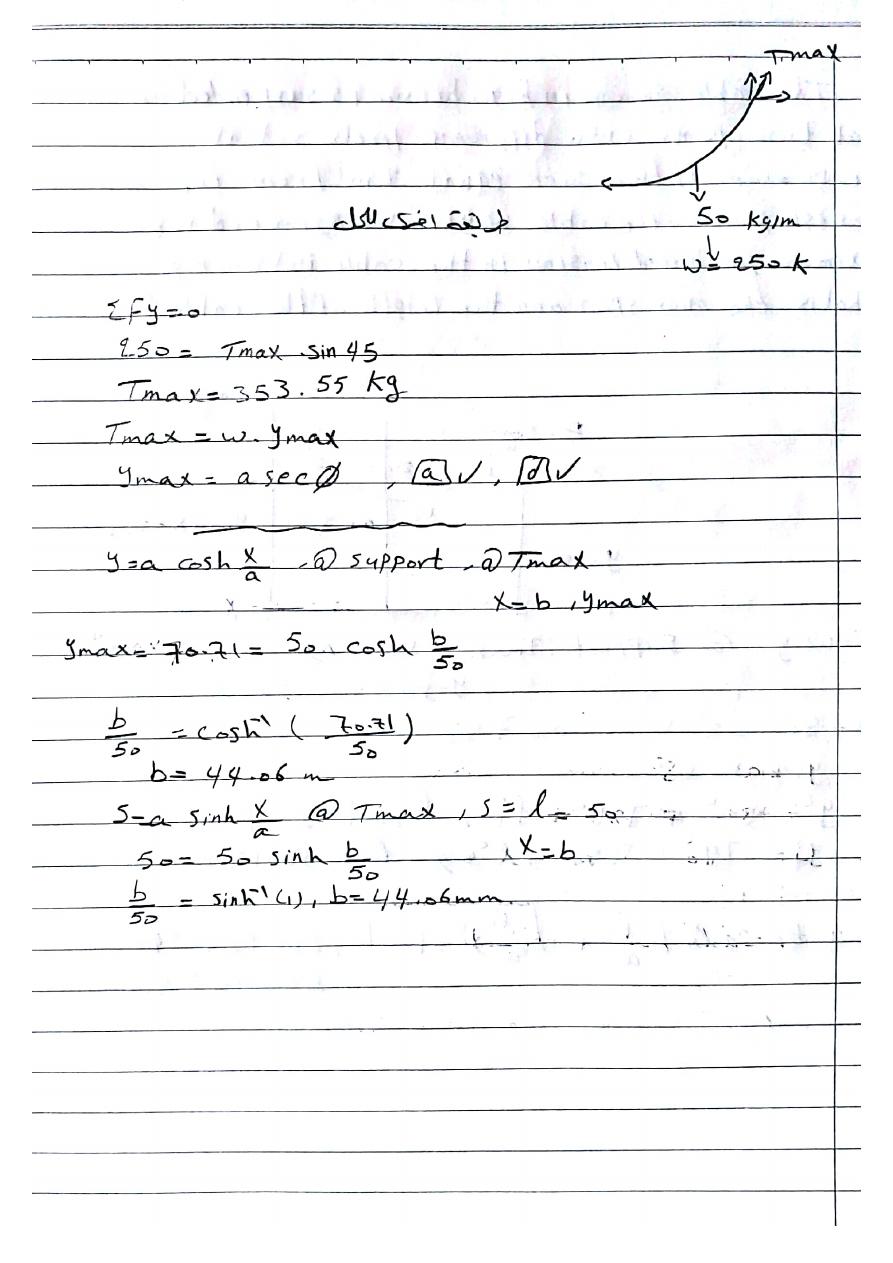 Tmax
50 kg/m
طريقة اخرى للحل
w = 250 k
ΣFy=0
250 = Tmax .sin 45
Tmax = 353.55 kg
Tmax = w. ymax
ymax = a sec Ø , a ✓ , d ✓
y=a cosh x/a , @ support , @ Tmax
x=b , ymax
ymax = 70.71 = 50 cosh b/50
b/50 = cosh⁻¹ ( 70.71/50 )
b= 44.06 m
S=a sinh x/a @ Tmax , S = l = 50
50 = 50 sinh b/50 x=b
b/50 = sinh⁻¹ (1) , b= 44.06mm.